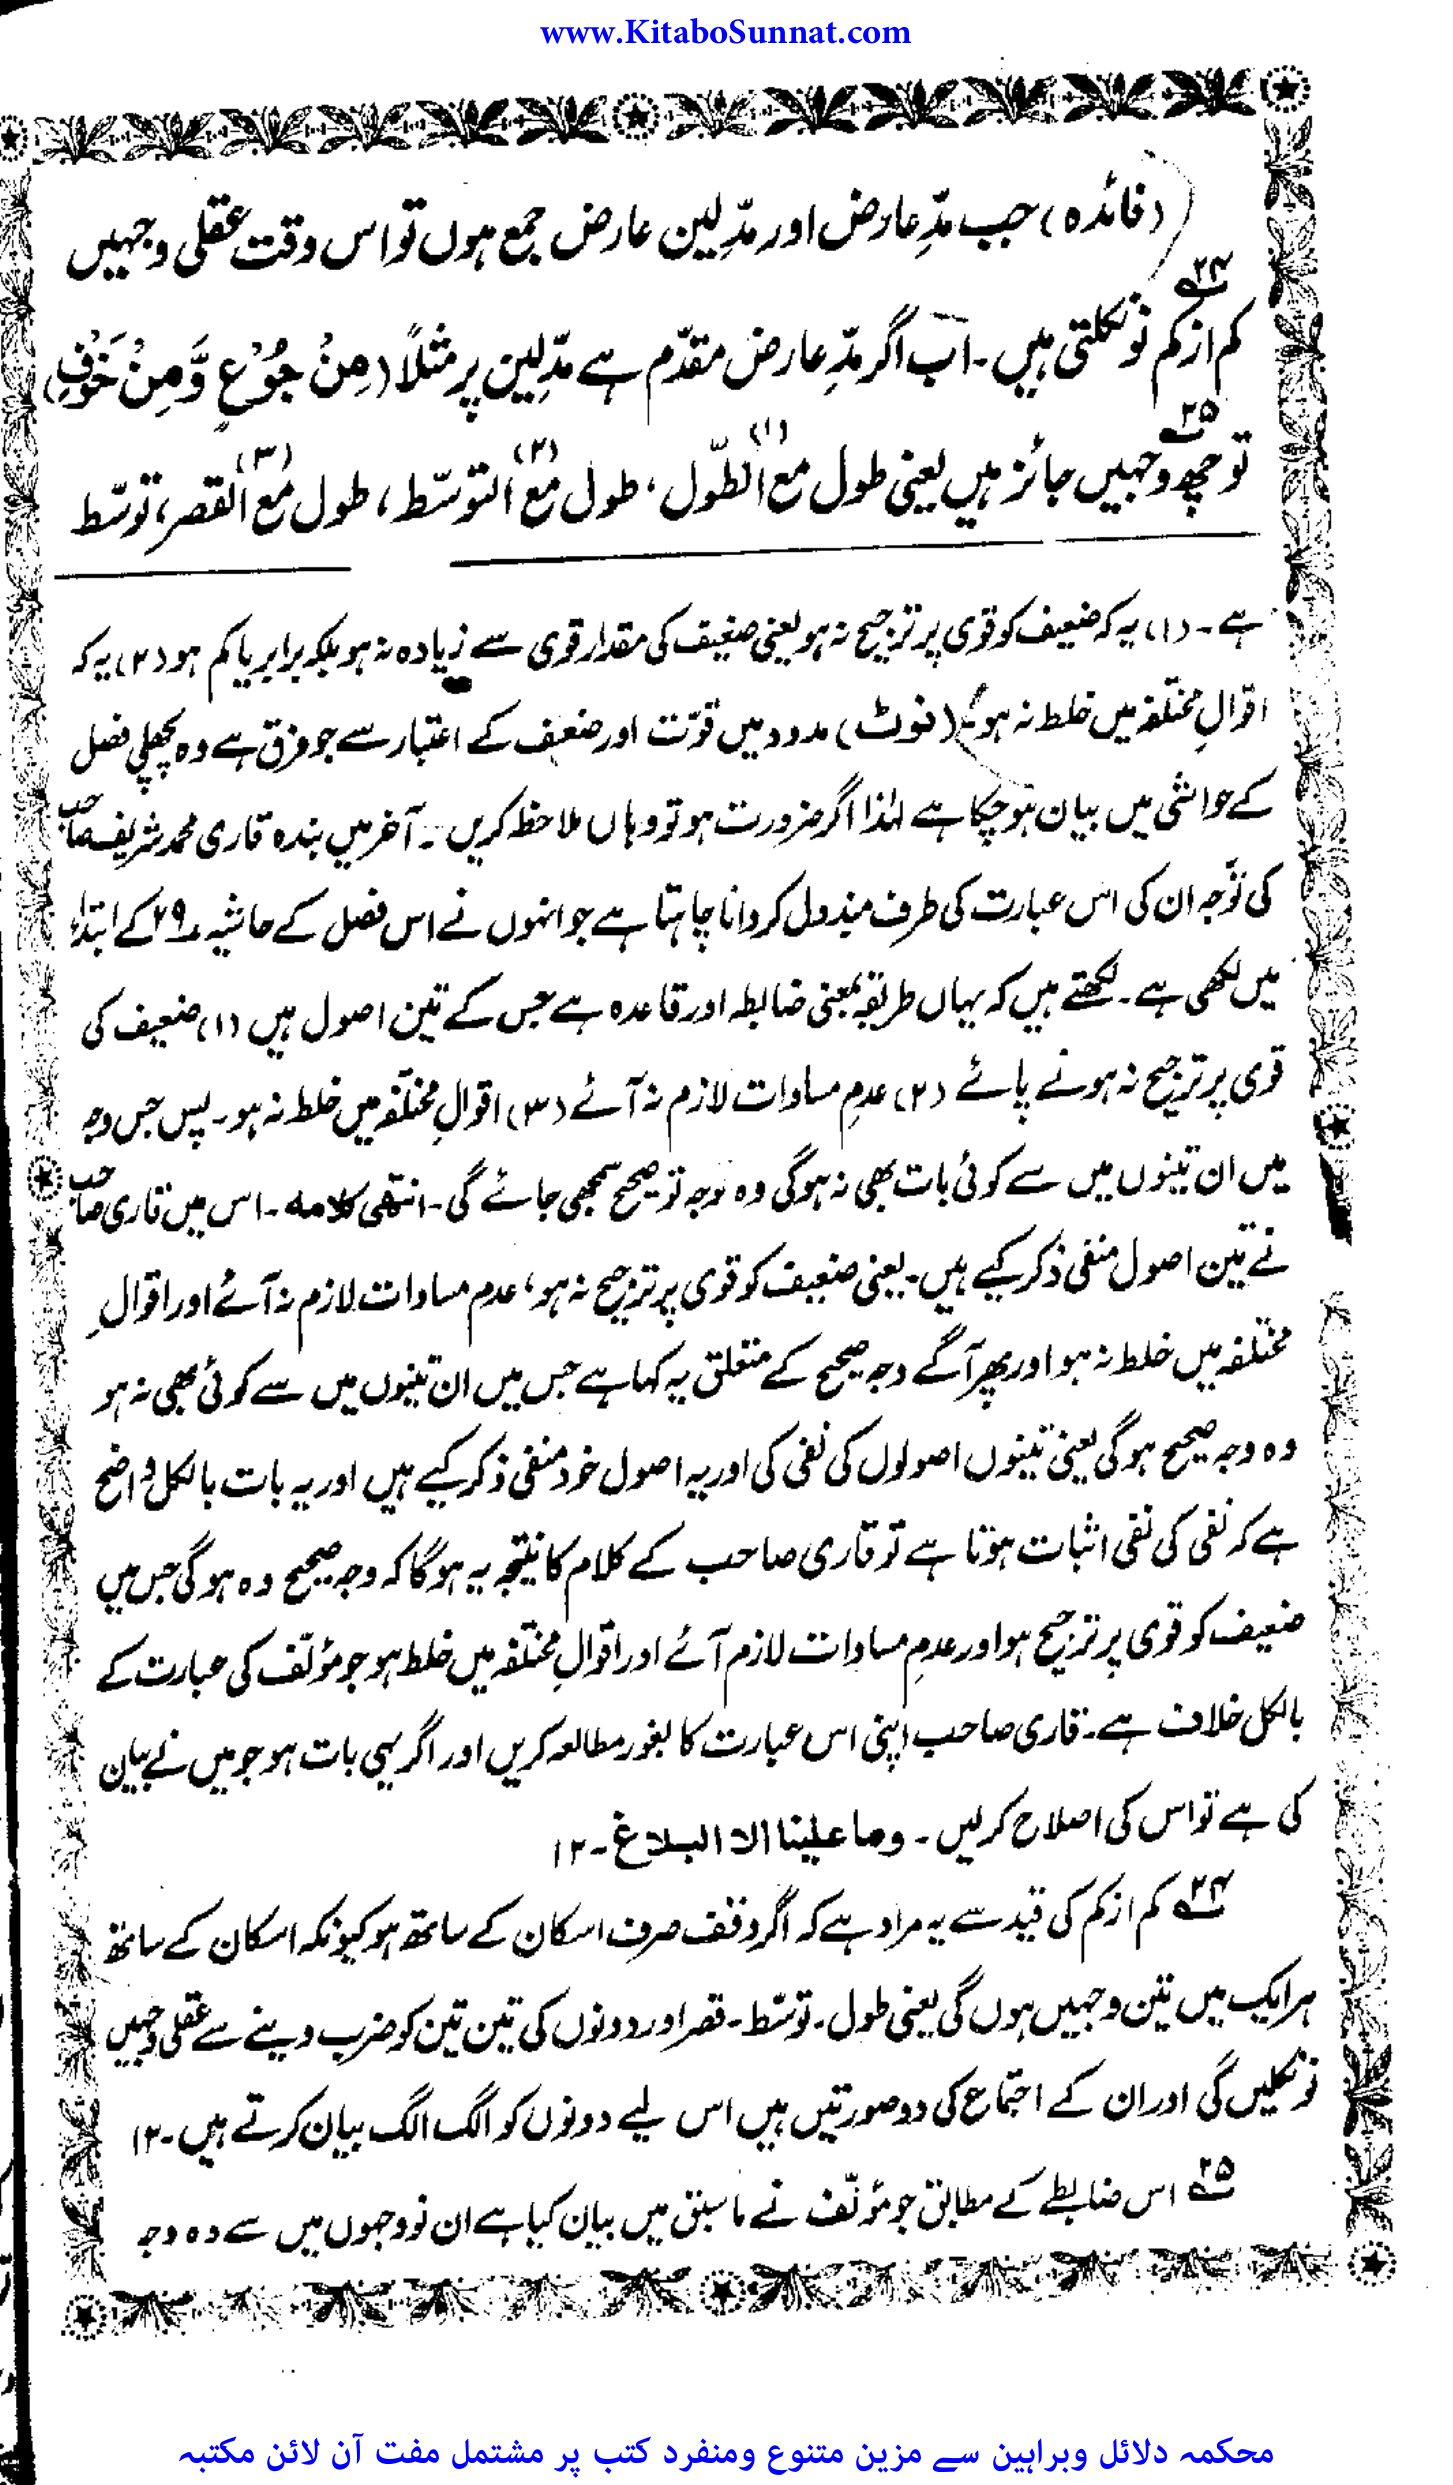 www.KitaboSunnat.com
(فائدہ) جب مدِّ عارض اور مدِّ لین عارض جمع ہوں تو اس وقت عقلی وجہیں
کم از کم نو نکلتی ہیں۲۴۔ اب اگر مدِّ عارض مقدّم ہے مدِّ لین پر مثلاً (مِنْ جُوْعٍ وَّمِنْ خَوْفٍ)
تو چھ۲۵ وجہیں جائز ہیں یعنی طول مع الطّول(۱)، طول مع التوسّط(۲)، طول مع القصر(۳)، توسّط
ہے۔ (۱) یہ کہ ضعیف کو قوی پر ترجیح نہ ہو یعنی ضعیف کی مقدار قوی سے زیادہ نہ ہو بلکہ برابر یا کم ہو (۲) یہ کہ
اقوالِ مختلفہ میں خلط نہ ہو۔ (نوٹ) مدود میں قوّت اور ضعف کے اعتبار سے جو فرق ہے وہ پچھلی فصل
کے حواشی میں بیان ہو چکا ہے لہٰذا اگر ضرورت ہو تو وہاں ملاحظہ کریں۔ آخر میں بندہ قاری محمد شریف صاحب
کی توجہ ان کی اس عبارت کی طرف مبذول کروانا چاہتا ہے جو انہوں نے اس فصل کے حاشیہ ۲۹ کے ابتداء
میں لکھی ہے۔ لکھتے ہیں کہ یہاں طریقہ بمعنی ضابطہ اور قاعدہ ہے جس کے تین اصول ہیں (۱) ضعیف کی
قوی پر ترجیح نہ ہونے پائے (۲) عدمِ مساوات لازم نہ آئے (۳) اقوالِ مختلفہ میں خلط نہ ہو۔ پس جس وجہ
میں ان تینوں میں سے کوئی بات بھی نہ ہوگی وہ وجہ تو صحیح سمجھی جائے گی۔ انتھی کلامہ۔ اس میں قاری صاحب
نے تین اصول منفی ذکر کیے ہیں۔ یعنی ضعیف کو قوی پر ترجیح نہ ہو، عدم مساوات لازم نہ آئے اور اقوالِ
مختلفہ میں خلط نہ ہو اور پھر آگے وجہ صحیح کے متعلق یہ کہا ہے جس میں ان تینوں میں سے کوئی بھی نہ ہو
وہ وجہ صحیح ہوگی یعنی تینوں اصولوں کی نفی کی اور یہ اصول خود منفی ذکر کیے ہیں اور یہ بات بالکل واضح
ہے کہ نفی کی نفی اثبات ہوتا ہے تو قاری صاحب کے کلام کا نتیجہ یہ ہوگا کہ وجہ صحیح وہ ہوگی جس میں
ضعیف کو قوی پر ترجیح ہو اور عدمِ مساوات لازم آئے اور اقوالِ مختلفہ میں خلط ہو جو مؤلّف کی عبارت کے
بالکل خلاف ہے۔ قاری صاحب اپنی اس عبارت کا بغور مطالعہ کریں اور اگر یہی بات ہو جو میں نے بیان
کی ہے تو اس کی اصلاح کر لیں۔ وما علینا الا البلاغ۔ ۱۲
۲۴ کم از کم کی قید سے یہ مراد ہے کہ اگر وقف صرف اسکان کے ساتھ ہو کیونکہ اسکان کے ساتھ
ہر ایک میں تین وجہیں ہوں گی یعنی طول۔ توسّط۔ قصر اور دونوں کی تین تین کو ضرب دینے سے عقلی وجہیں
نو نکلیں گی اور ان کے اجتماع کی دو صورتیں ہیں اس لیے دونوں کو الگ الگ بیان کرتے ہیں۔ ۱۲
۲۵ اس ضابطے کے مطابق جو مؤلّف نے ما سبق میں بیان کیا ہے ان نو وجہوں میں سے وہ وجہ
محکمہ دلائل وبراہین سے مزین متنوع ومنفرد کتب پر مشتمل مفت آن لائن مکتبہ